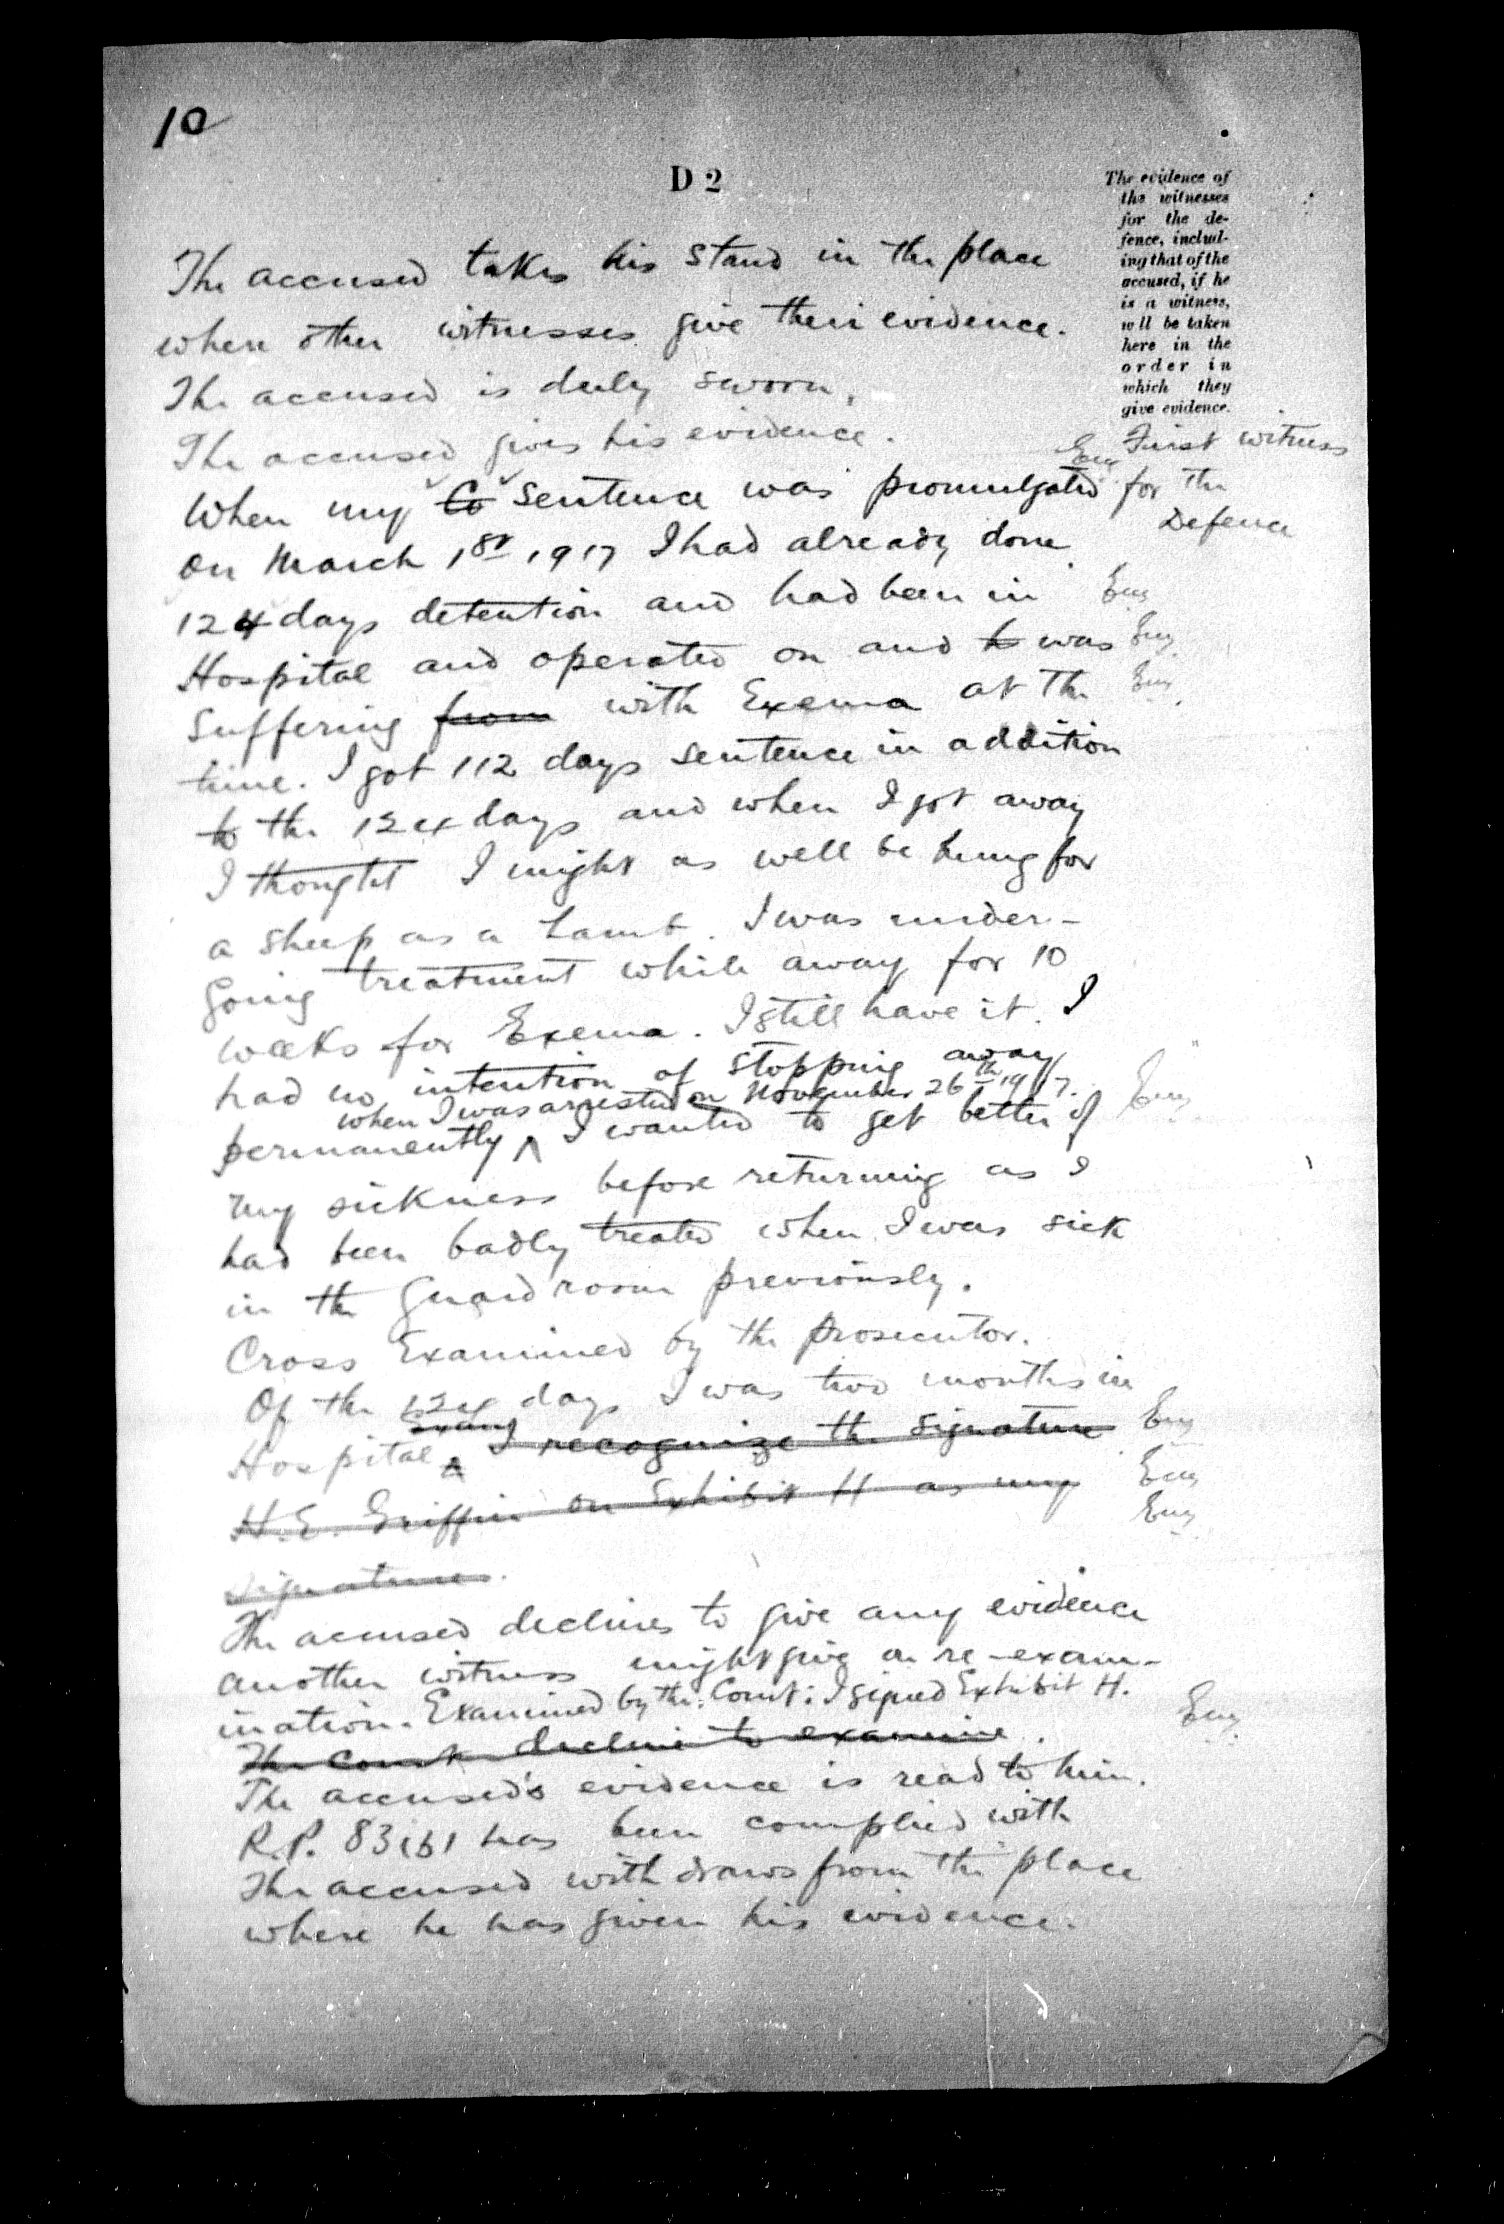 10
D 2
The evidence of
the witnesses
for the de-
fence, includ-
ing that of the
accused, if he
is a witness,
will be taken
here in the
order in
which they
give evidence.
First witness
for the
Defence
The accused takes his stand in the place
where other witnesses give their evidence.
The accused is duly sworn.
The accused gives his evidence.
When my Co sentence was promulgated
on March 1st 1917 I had already done
124 days detention and had been in
Hospital and operated on and h was
suffering from with Exema at the
time. I got 112 days sentence in addition
to the 124 days and when I got away
I thought I might as well be hung for
a sheep as a Lamb. I was under-
going treatment while away for 10
weeks for Exema. I still have it. I
had no intention of stopping away
when I was arrested on November 26th 1917.
permanently ^ I wanted to get better of
my sickness before returning as I
had been badly treated when I was sick
in the Guard room previously.
Cross Examined by the prosecutor.
Of the 124 days I was two months in
Hospital ^ I recognize the signature
H.E. Griffin on Exhibit H as my
signature.
The accused declines to give any evidence
another witness might give on re-exam-
ination. Examined by the Court: I signed Exhibit H.
The Court decline to examine.
The accused's evidence is read to him.
R.P. 83(b) has been complied with
The accused withdraws from the place
where he has given his evidence.